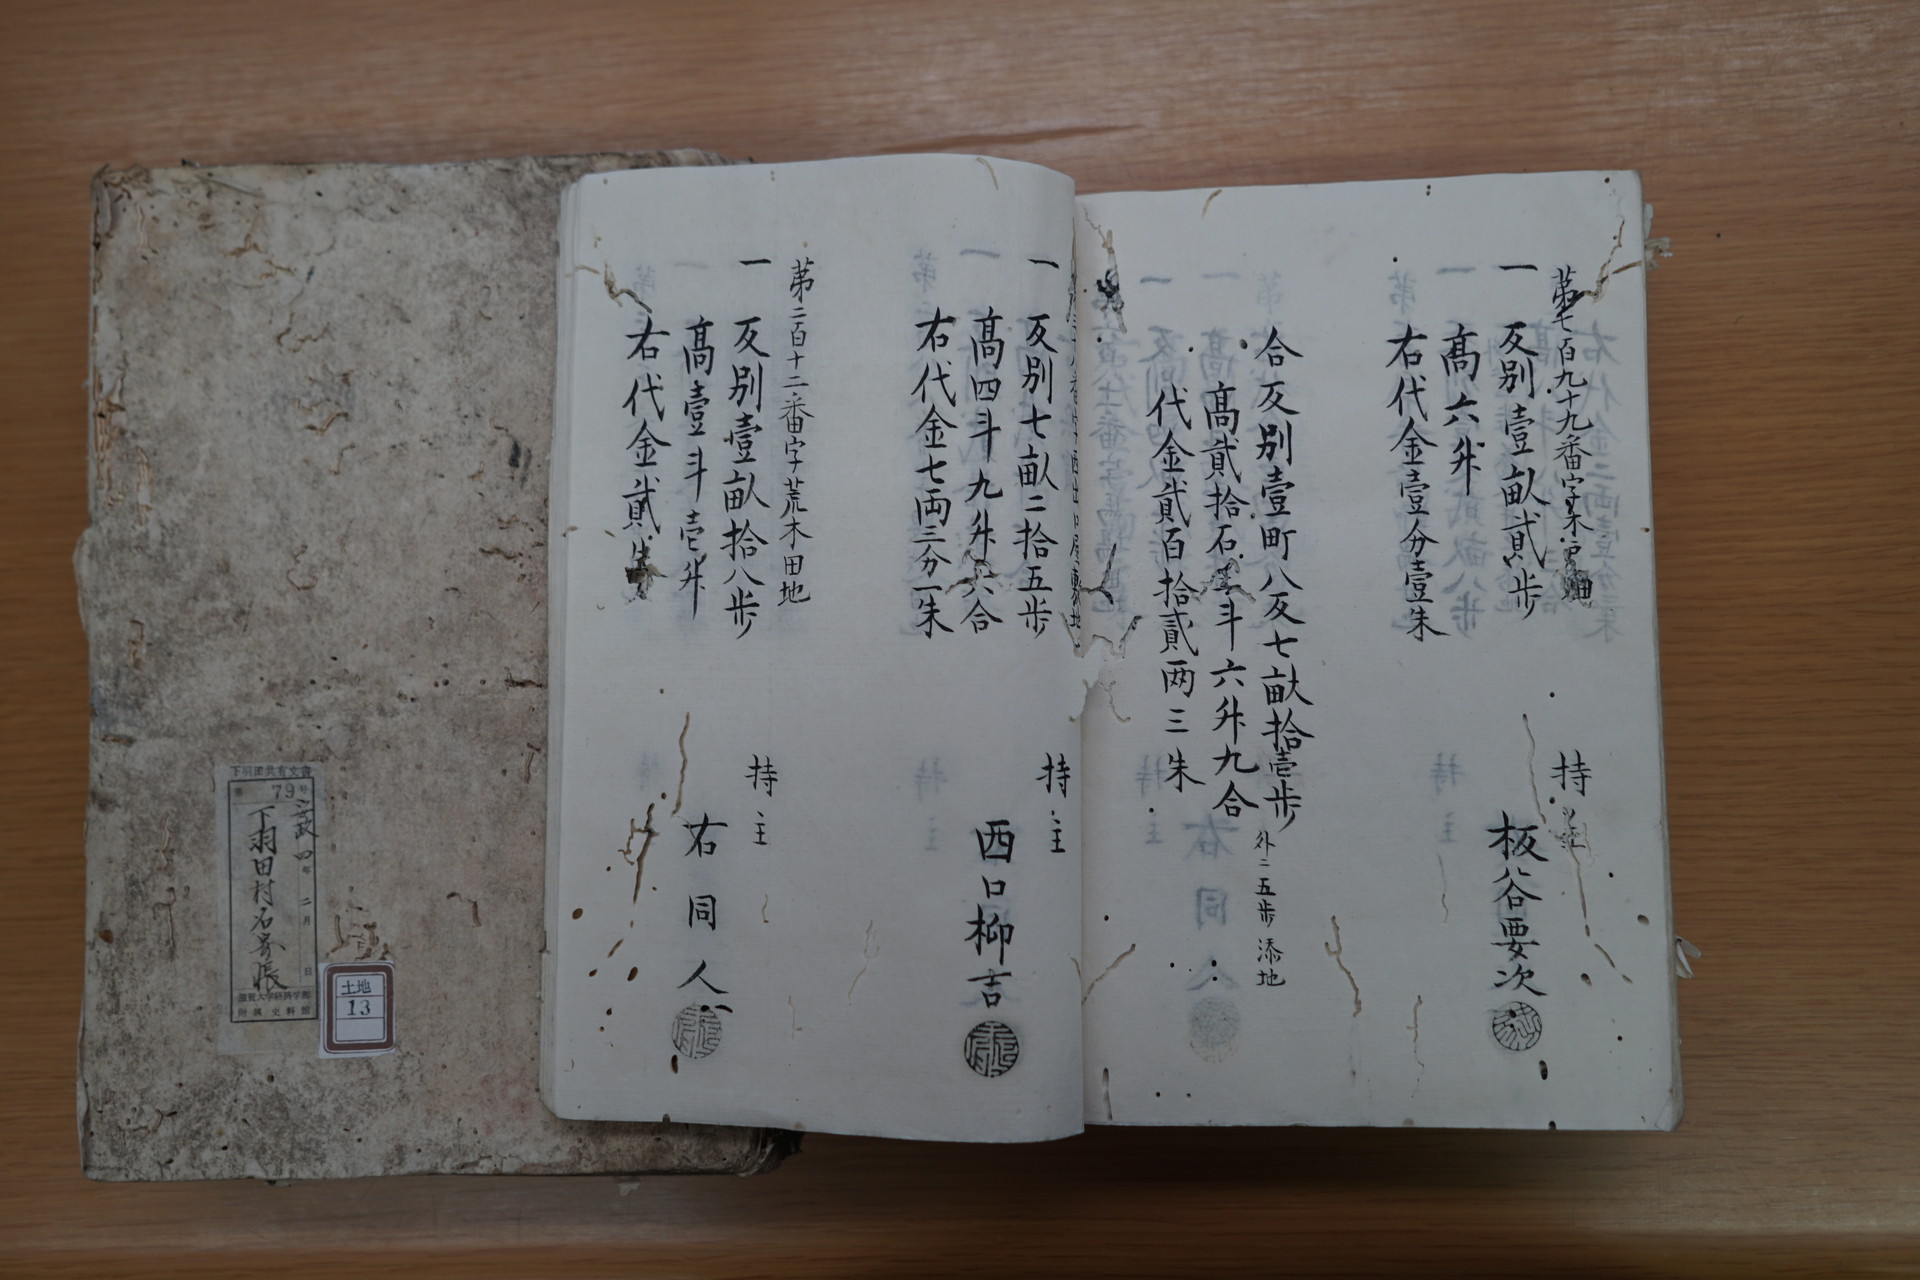 第七百九十九番字木
一 反別壹畝貳歩
高六升
右代金壹分壹朱
持主
板谷要次
合反別壹町八反七畝拾壱歩
外ニ五歩 添地
高貳拾石 斗六升九合
代金貳百拾貳两三朱
一 反別七畝二拾五歩
高四斗九升六合
右代金七両三分一朱
持主
西口柳吉
第二百十二番字荒木田地
一 反別壹畝拾八歩
高壹斗壱升
右代金貳朱
持主
右同人
下羽田共有文書
79号
政四年二月 日
下羽田村名寄帳
滋賀大学経済学部
附属史料館
土地
13